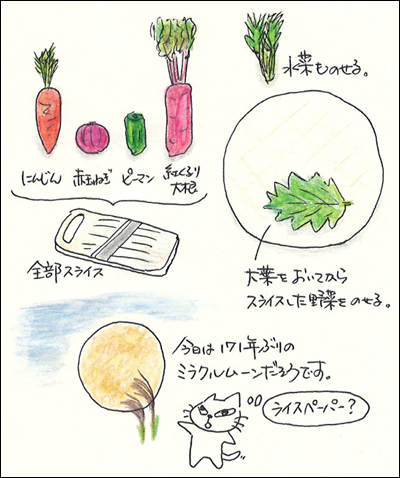 水菜ものせる。
にんじん
赤玉ねぎ
ピーマン
紅くるり
大根
全部スライス
大葉をおいてから
スライスした野菜をのせる。
今日は171年ぶりの
ミラクルムーンだそうです。
ライスペーパー?